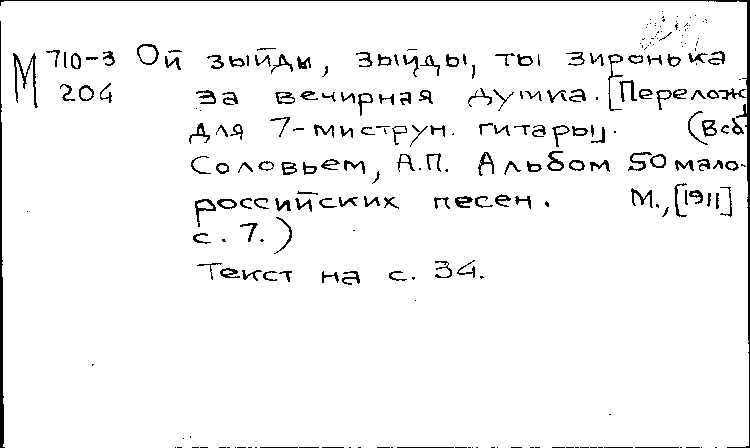 М 710-3 Ой зыйды, зыйды, ты зиронька
204 за вечирная думка. [Перелож
для 7-миструн. гитары]. (В сб
Соловьем, А.П. Альбом 50 мало-
российских песен. М., [1911]
с. 7.)
Текст на с. 34.